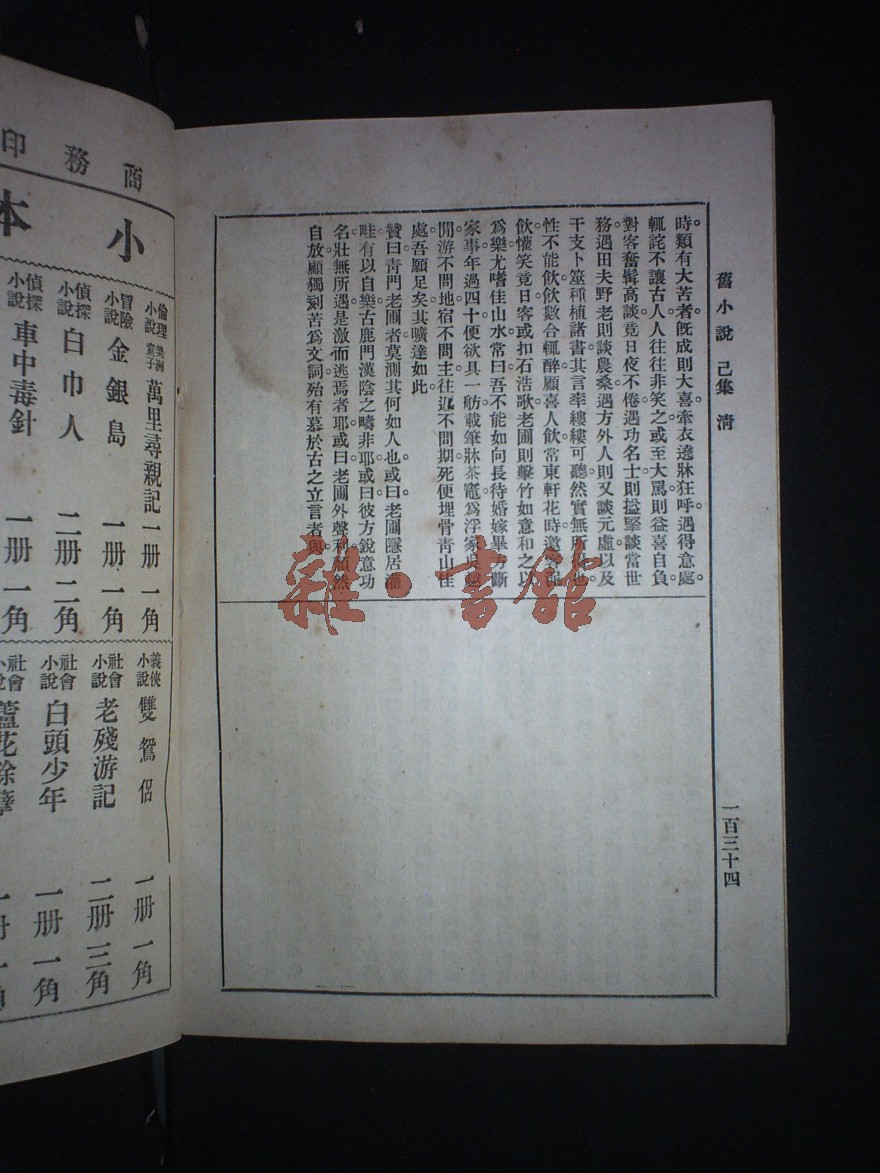 舊小說 己集 清
一百三十四
時類有大苦者。旣成則大喜。牽衣遶牀狂呼。遇得意處。
輒詫不讓古人。人往往非笑之。或至大罵則益喜自負。
對客奮髯高談竟日夜不倦。遇功名士則搤掔談當世
務。遇田夫野老則談農桑。遇方外人則又談元虛以及
干支卜筮種植諸書。其言牽縷縷可聽。然實無所 也。
性不能飲。飲數合輒醉。顧喜人飲。常東軒花時邀客
飲。懽笑竟日。客或扣石浩歌。老圃則擊竹如意和之以
爲樂。尤嗜佳山水。常曰。吾不能如向長待婚嫁畢方斷
家事。年過四十。便欲具一舫載筆牀茶竈。爲浮家
閒游。不問地。宿不問主。往返不問期。死便埋骨青山佳
處。吾願足矣。其曠達如此。
贊曰。青門老圃者。莫測其何如人也。或曰。老圃隱居灌
畦。有以自樂。古鹿門漢陰之疇非耶。或曰。彼方銳意功
名。壯無所遇。是激而逃焉者耶。或曰。老圃外聲利 然
自放。顧獨刻苦爲文詞。殆有慕於古之立言者與。
雜·書館
商務印
小本
倫理小說 美洲童子 萬里尋親記 一册 一角
冒險小說 金銀島 一册 一角
偵探小說 白巾人 二册 二角
偵探小說 車中毒針 一册 一角
義俠小說 雙鴛侶 一册 一角
社會小說 老殘游記 二册 三角
社會小說 白頭少年 一册 一角
社會小說 蘆花餘孽 一册 一角